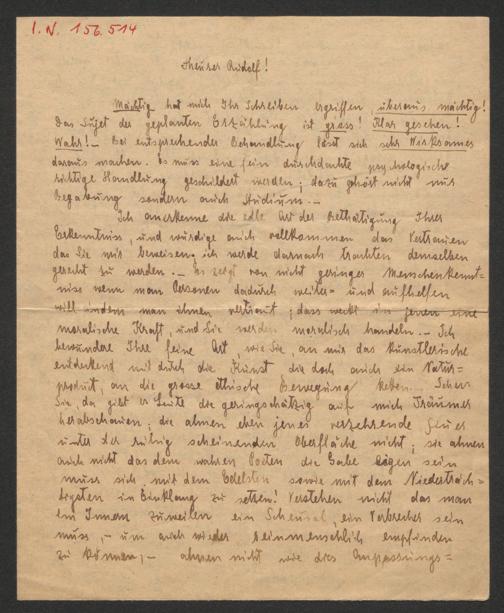 I.N. 156.514
Theurer Rudolf!
Mächtig hat mich Ihr Schreiben ergriffen, überaus mächtig!
Das Sujet der geplanten Erzählung ist gross! Klar gesehen!
Wahr! – Bei entsprechender Behandlung lässt sich sehr Wirksames
daraus machen. Es muss eine fein durchdachte psychologisch
richtige Handlung geschildert werden; dazu gehört nicht nur
Begabung sondern auch Studium. –
Ich anerkenne die edle Art der Bethätigung Ihrer
Erkenntniss, und würdige auch vollkommen das Vertrauen
das Sie mir beweisen; ich werde darnach trachten demselben
gerecht zu werden. – Es zeigt von nicht geringer Menschenkennt=
niss wenn man Personen dadurch weiter- und aufhelfen
will indem man ihnen vertraut; dass weckt in jenen eine
moralische Kraft, und Sie werden moralisch handeln. – Ich
bewundere Ihre feine Art, wie Sie, an mir das künstlerische
entdeckend mit durch die Kunst die doch auch ein Natur=
produkt, an die grosse ethische Bewegung ketten. Sehen
Sie, da gibt es Leute die geringschätzig auf mich Träumer
herabschauen; die ahnen eben jenes verzehrende Feuer
unter der ruhig scheinenden Oberfläche nicht; sie ahnen
auch nicht das dem wahren Poeten die Gabe eigen sein
muss sich mit dem Edelsten sowie mit dem Niederträch=
tigsten in Einklang zu setzen! Verstehen nicht das man
im Innern zuweilen ein Scheusal, ein Verbrecher sein
muss, – um auch wieder reinmenschlich empfinden
zu können, – ahnen nicht wie dies Anpassungs=